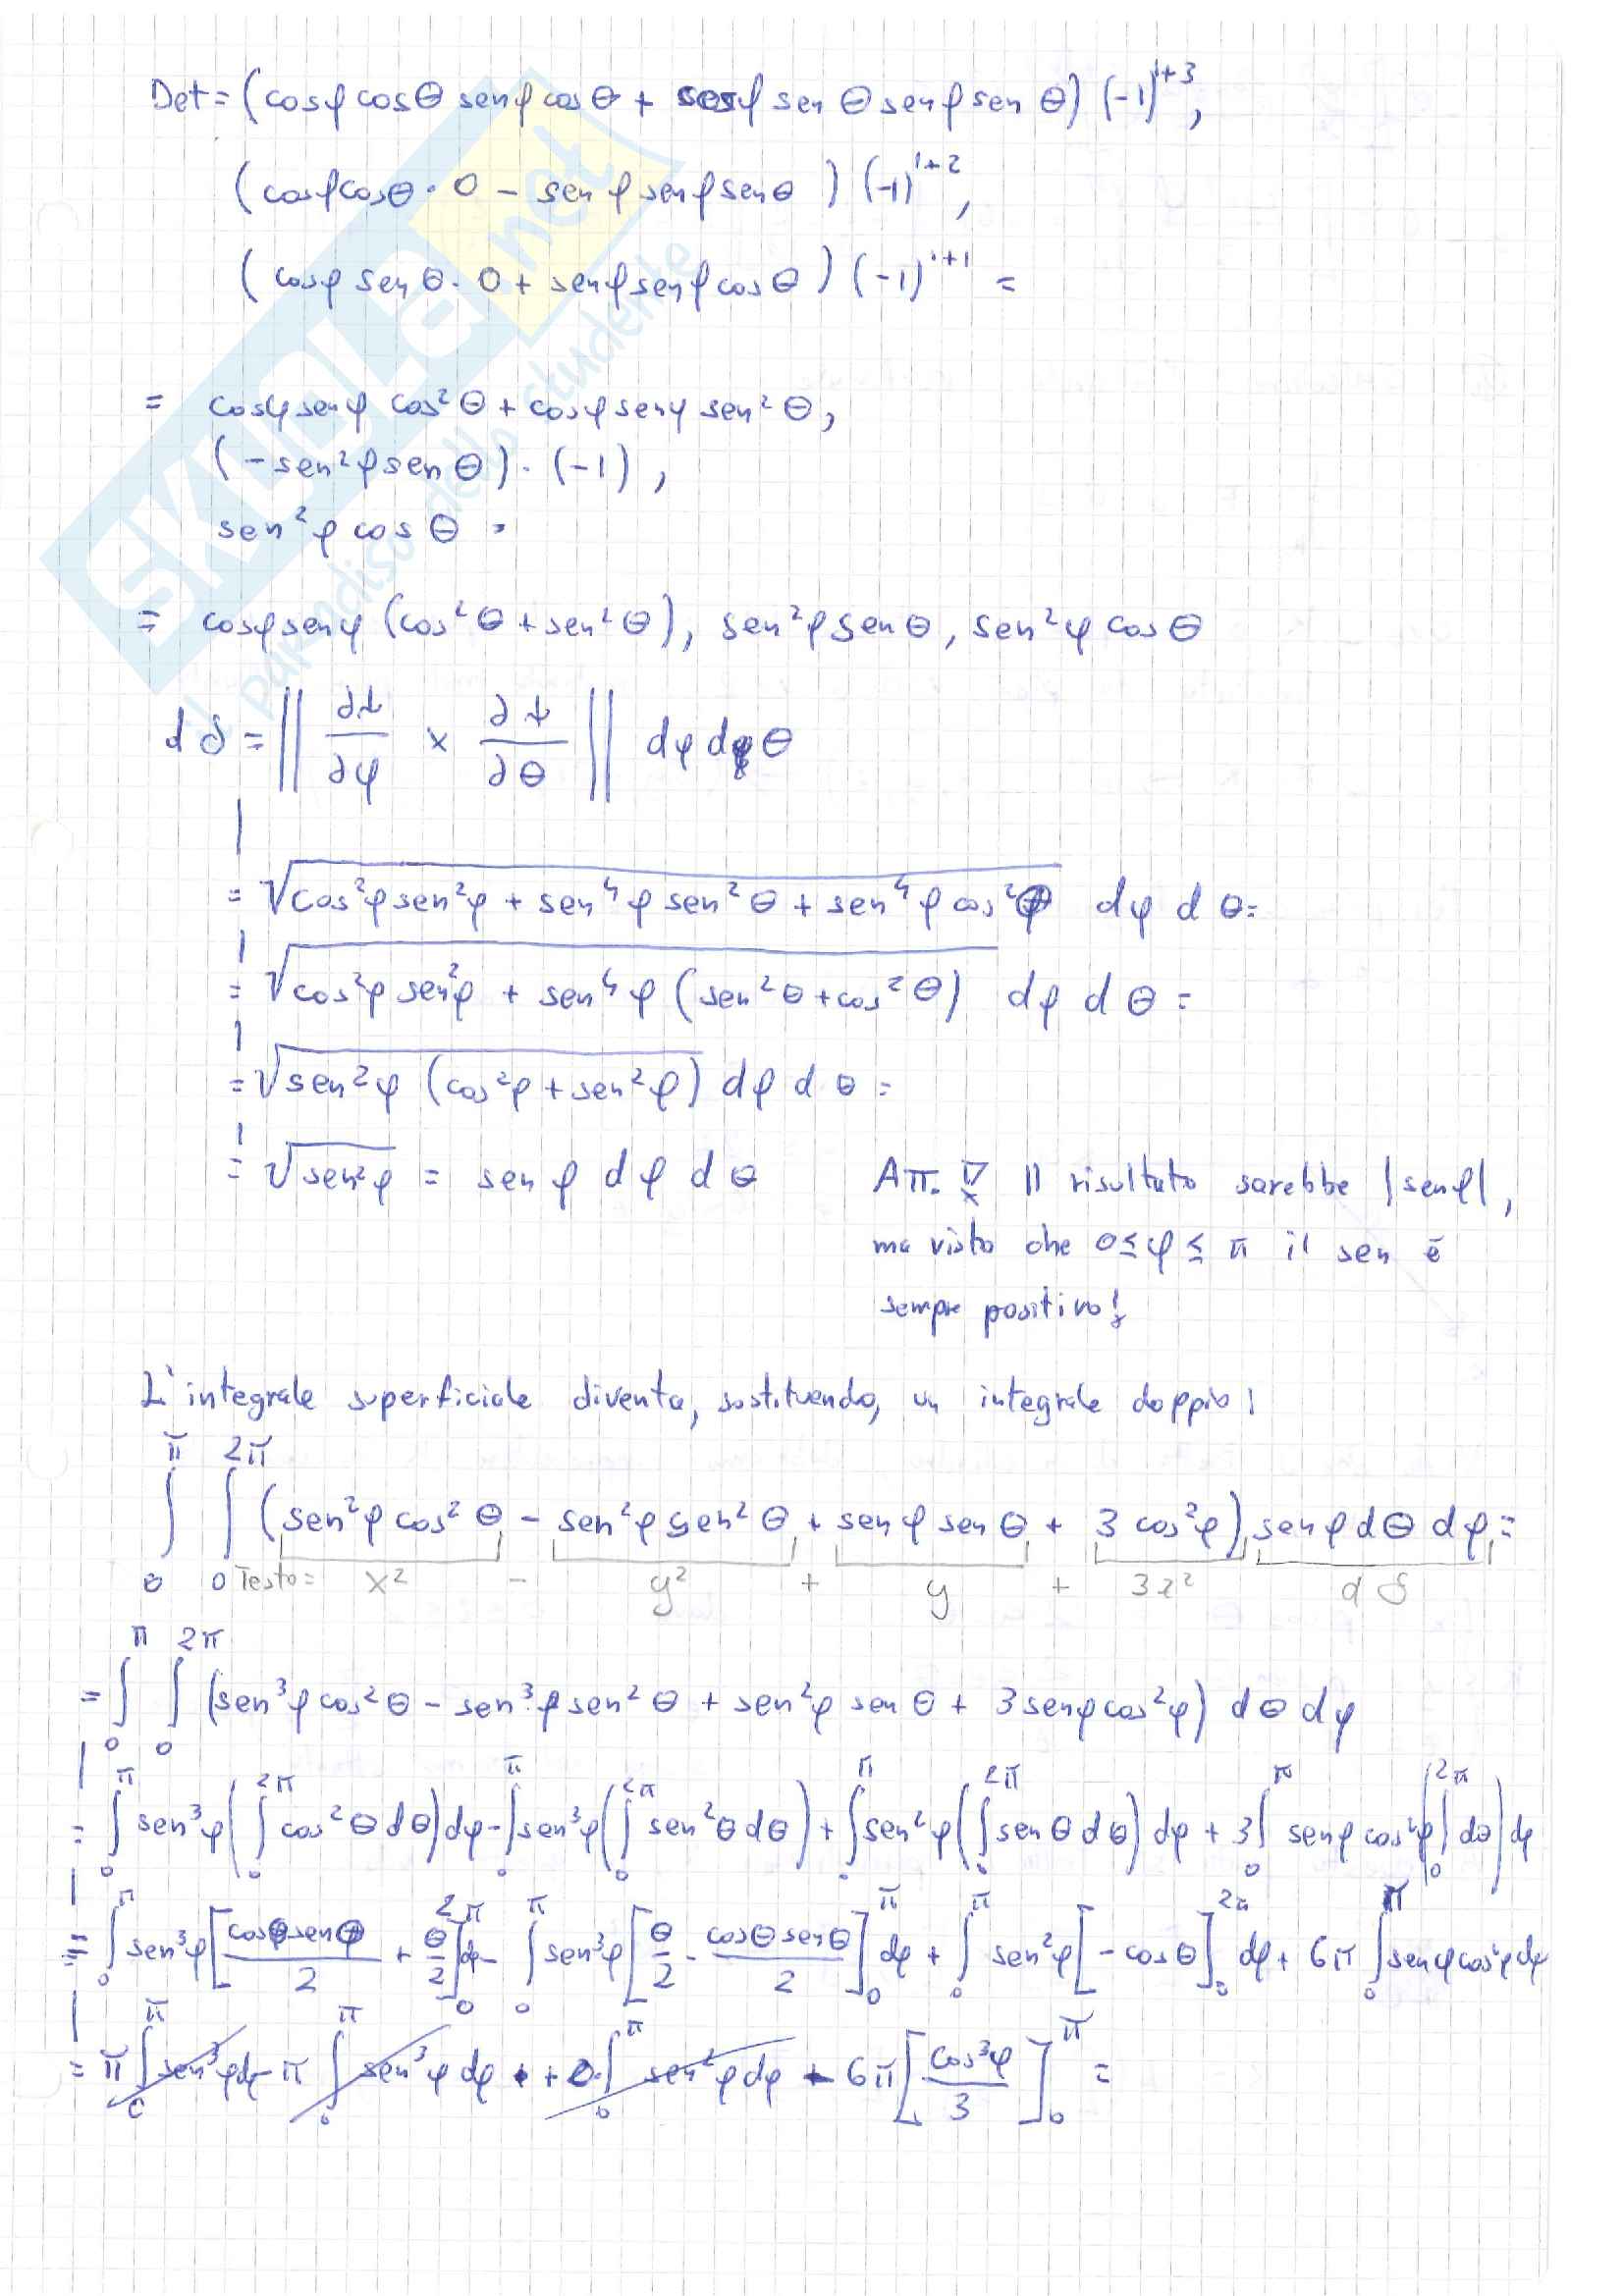 Det = (cosφ cosθ senφ cosθ + cosφ senθ senφ senθ) (-1)^{1+3},
(cosφ cosθ · 0 - senφ senφ senθ) (-1)^{1+2},
(cosφ senθ · 0 + senφ senφ cosθ) (-1)^{1+1} =
= cosφ senφ cos²θ + cosφ senφ sen²θ,
(-sen²φ senθ) · (-1),
sen²φ cosθ =
= cosφ senφ (cos²θ + sen²θ), sen²φ senθ, sen²φ cosθ
dS = || ∂t/∂φ × ∂t/∂θ || dφ dθ
= √(cos²φ sen²φ + sen⁴φ sen²θ + sen⁴φ cos²θ) dφ dθ =
= √(cos²φ sen²φ + sen⁴φ (sen²θ + cos²θ)) dφ dθ =
= √(sen²φ (cos²φ + sen²φ)) dφ dθ =
= √(sen²φ) = senφ dφ dθ
ATT.! Il risultato sarebbe |senφ|,
ma visto che 0 ≤ φ ≤ π il sen è
sempre positivo!
L'integrale superficiale diventa, sostituendo, un integrale doppio!
∫₀^π ∫₀^{2π} (sen²φ cos²θ - sen²φ sen²θ + senφ senθ + 3 cos²φ) senφ dθ dφ =
Testo = x² - y² + y + 3z² dS
= ∫₀^π ∫₀^{2π} (sen³φ cos²θ - sen³φ sen²θ + sen²φ senθ + 3 senφ cos²φ) dθ dφ
= ∫₀^π sen³φ (∫₀^{2π} cos²θ dθ) dφ - ∫₀^π sen³φ (∫₀^{2π} sen²θ dθ) + ∫₀^π sen²φ (∫₀^{2π} senθ dθ) dφ + 3 ∫₀^π senφ cos²φ (∫₀^{2π} dθ) dφ
= ∫₀^π sen³φ [cosθ senθ / 2 + θ/2]₀^{2π} dφ - ∫₀^π sen³φ [θ/2 - cosθ senθ / 2]₀^π dφ + ∫₀^π sen²φ [-cosθ]₀^{2π} dφ + 6π ∫₀^π senφ cos²φ dφ
= π ∫₀^π sen³φ dφ - π ∫₀^π sen³φ dφ + 0 · ∫₀^π sen²φ dφ - 6π [cos³φ / 3]₀^π =
SKUOLA.net
il paradiso dello studente